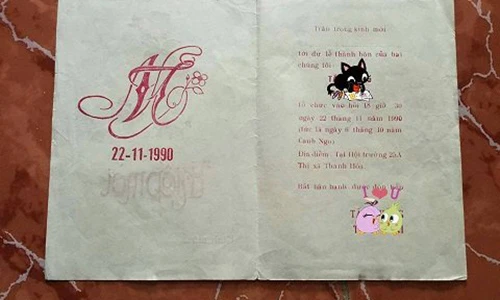 22-11-1990
Trân trọng kính mời
tới dự lễ thành hôn của hai
chúng tôi
T
tổ chức vào hồi 15 giờ 30
ngày 22 tháng 11 năm 1990
(tức là ngày 6 tháng 10 năm
Canh Ngọ)
Địa điểm: Tại Hội trường 25A
Thị xã Thanh Hóa.
Rất hân hạnh được đón tiếp
I U